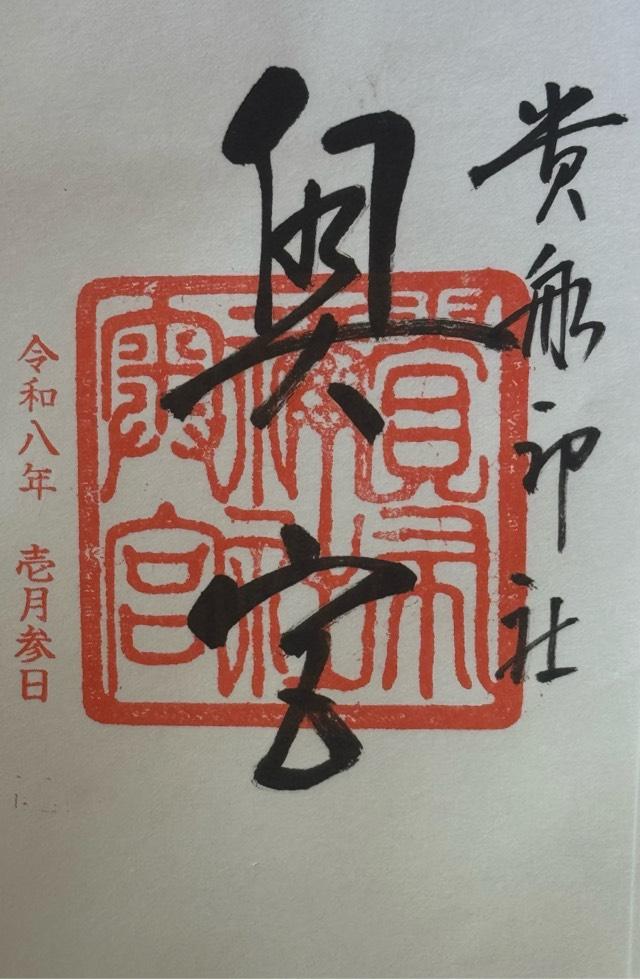 貴船神社
奥宮
貴布
禰社
奥宮
令和八年 壱月参日